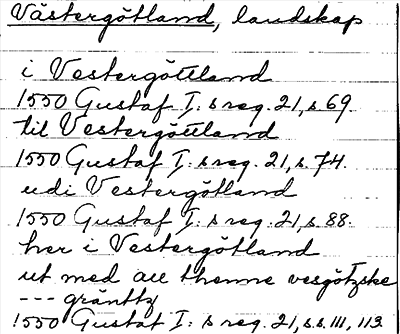 Västergötland, landskap
i Vestergöttland
1550 Gustaf I:s reg. 21, s 69.
til Vestergöttland
1550 Gustaf I:s reg. 21, s. 74.
udi Vestergötland
1550 Gustaf I:s reg. 21, s. 88.
her i Vestergötland
ut med all thenne vesgötzske
--- gräntz
1550 Gustaf I:s reg. 21, s.s. 111, 113